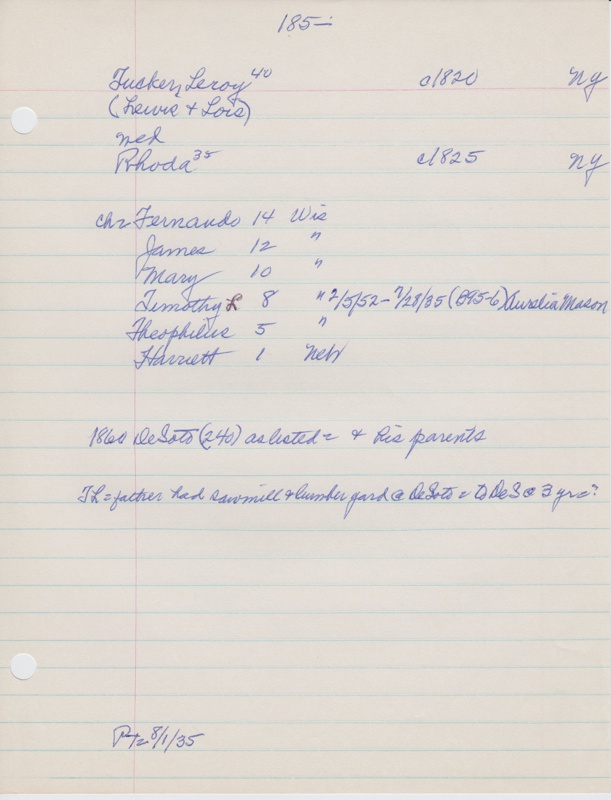 185-
Tucker, Leroy 40 c1820 NY
(Lewis + Lois)
med
Rhoda 35 c1825 NY
chr Fernando 14 Wis
James 12 "
Mary 10 "
Timothy L 8 " 2/5/52-7/28/35 (B95-6) Aurelia Mason
Theophilus 5 "
Harriett 1 Neb
1860 DeSoto (240) as listed = & his parents
TL = father had sawmill & lumber yard @ DeSoto = to DeS @ 3 yr = ?
8/1/35